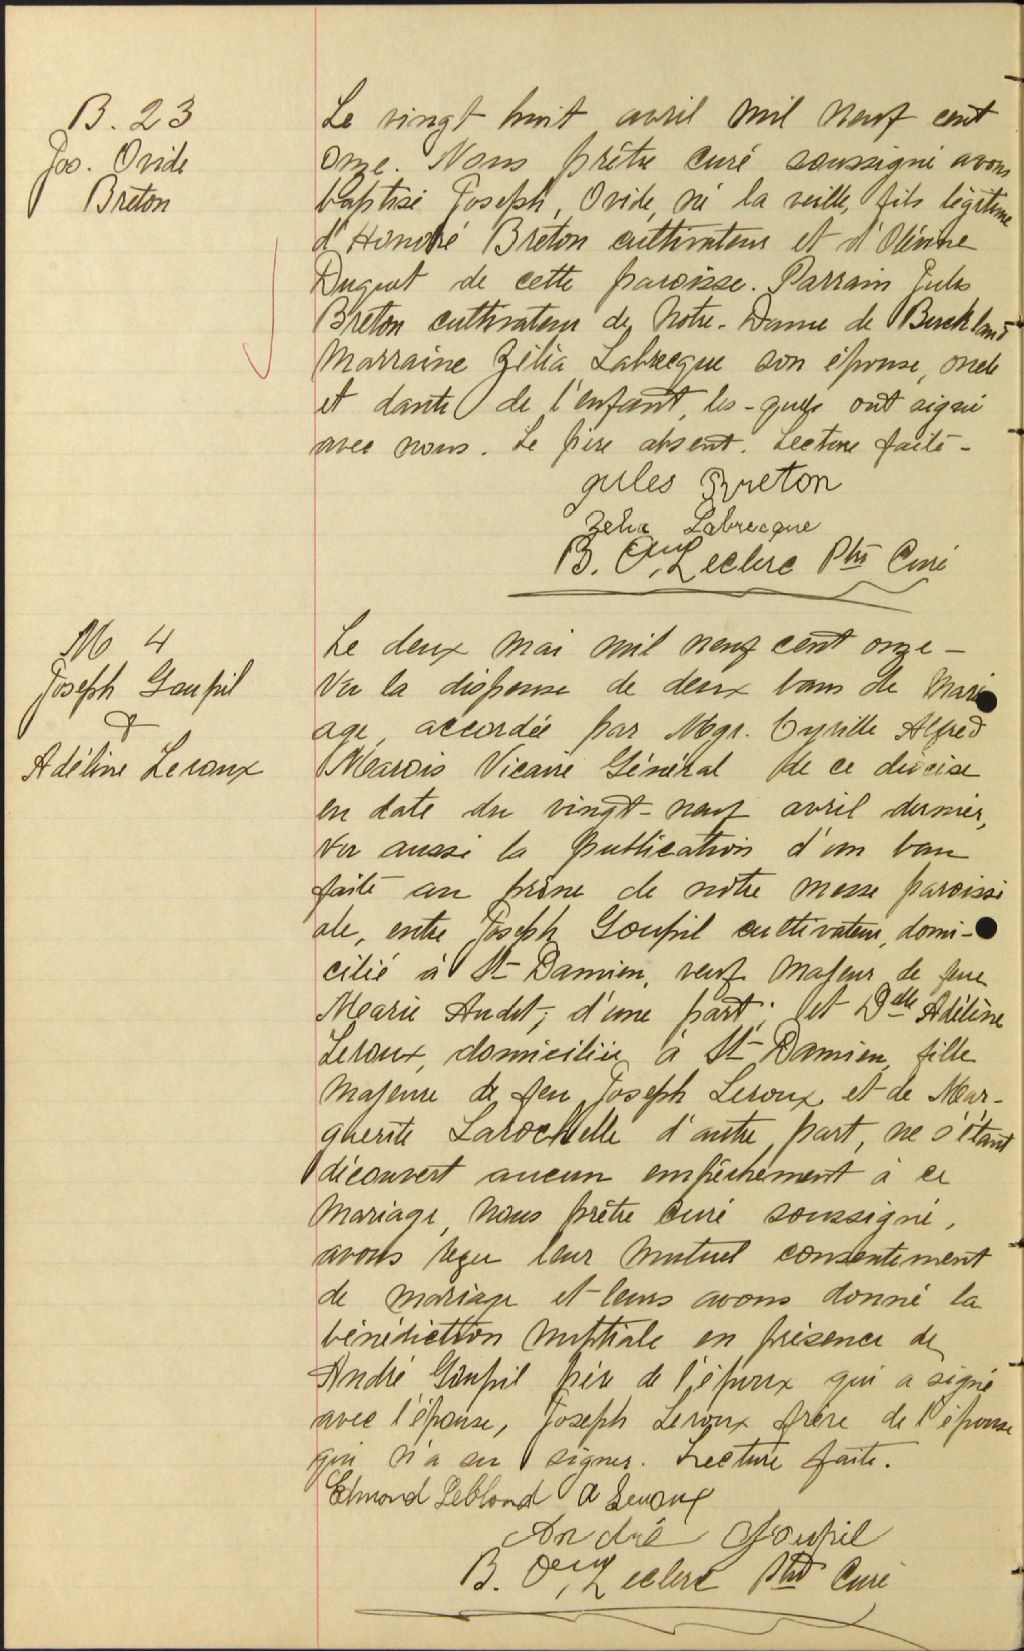 B. 23
Jos. Ovide
Breton
Le vingt huit avril mil neuf cent
onze. Nous prêtre curé soussigné avons
baptisé Joseph, Ovide, né la veille, fils légitime
d'Honoré Breton cultivateur et d'
de cette paroisse. Parrain Jules
Breton cultivateur de Notre-Dame de Buckland
Marraine Zélia Labrecque son épouse, oncle
et tante de l'enfant, les-quels ont signé
avec nous. Le père absent. Lecture faite-
jules Breton
Zelia Labrecque
B. Leclerc Ptre Curé
M 4
Joseph Goupil
&
Adéline Leroux
Le deux mai mil neuf cent onze-
Vu la dispense de deux bans de mari
age, accordée par Mgr. Cyrille Alfred
Marois Vicaire Général de ce diocèse
en date du vingt-neuf avril dernier,
Vu aussi la publication d'un ban
faite au prône de notre messe paroissi
ale, entre Joseph Goupil cultivateur, domi-
cilié à St-Damien, veuf majeur de feue
Marie Audet; d'une part; et Delle Adéline
Leroux, domiciliée à St-Damien, fille
majeure de feu Joseph Leroux et de Mar-
guerite Larochelle d'autre part, ne s'étant
découvert aucun empêchement à ce
mariage, Nous prêtre curé soussigné,
avons reçu leur mutuel consentement
de mariage et leurs avons donné la
bénédiction nuptiale en présence de
André Goupil père de l'époux qui a signé
avec l'épouse, Joseph Leroux frère de l'épouse
qui n'a su signer. Lecture faite.
Edmond Leblond A Leroux
André Goupil
B. Leclerc Ptre Curé